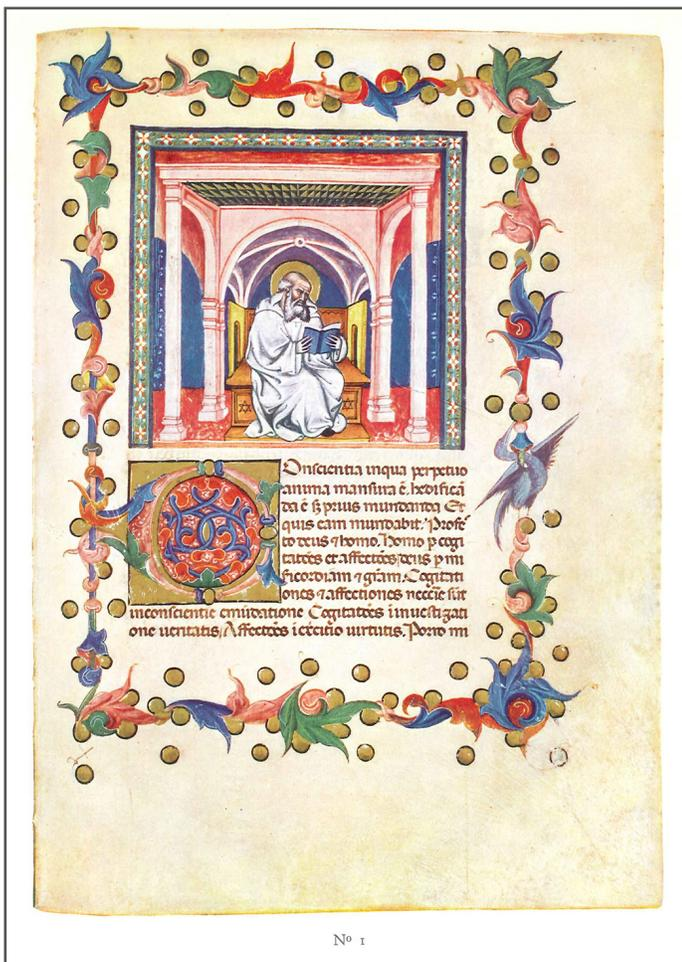 Onscientia inqua perpetuo
anima mansura ē. hedificā
da ē ⁊ prius mundanda Et
quis eam mundabit. Profe
to deus ⁊ homo. Homo ꝑ cogi
tatōēs et affectōēs, deus ꝑ mi
sicordiam ⁊ grām. Cogitati
ones ⁊ affectiones necc̄ie sūt
inconscientie emūdatione Cogitatōēs i investigati
one veritatis, Affectōēs i ex̄citio virtutis. Porro in
Nº 1